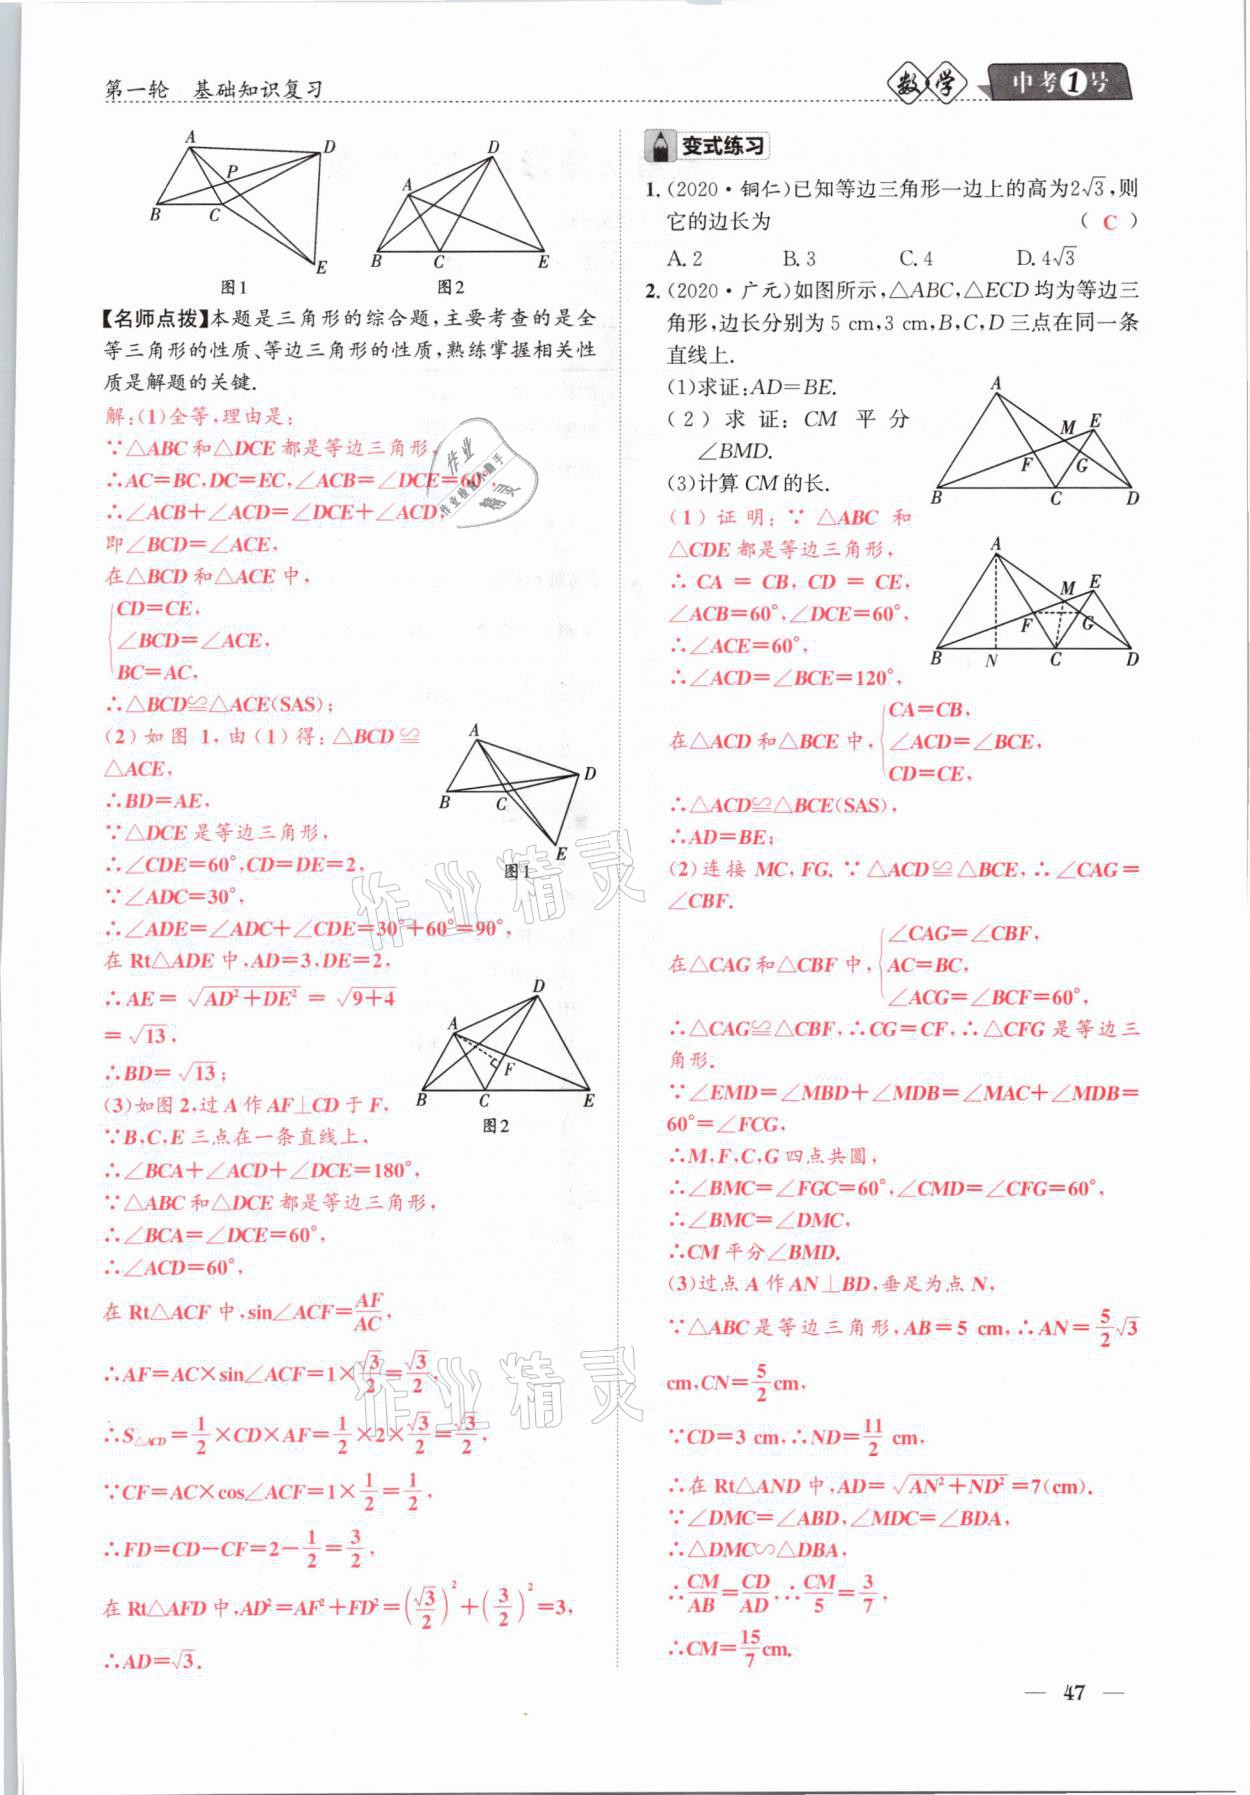 第一轮 基础知识复习
数学 中考1号
A D P B C E
图1
D A B C E
图2
【名师点拨】本题是三角形的综合题,主要考查的是全
等三角形的性质、等边三角形的性质,熟练掌握相关性
质是解题的关键.
解:(1)全等,理由是:
∵△ABC和△DCE都是等边三角形,
∴AC=BC,DC=EC,∠ACB=∠DCE=60°,
∴∠ACB+∠ACD=∠DCE+∠ACD,
即∠BCD=∠ACE,
在△BCD和△ACE中,
CD=CE,
∠BCD=∠ACE,
BC=AC,
∴△BCD≌△ACE(SAS);
(2)如图1,由(1)得:△BCD≌
△ACE,
∴BD=AE,
∵△DCE是等边三角形,
∴∠CDE=60°,CD=DE=2,
∵∠ADC=30°,
∴∠ADE=∠ADC+∠CDE=30°+60°=90°,
在Rt△ADE中,AD=3,DE=2,
∴AE=√(AD²+DE²)=√(9+4)
=√13,
∴BD=√13;
A D B C E
图1
(3)如图2,过A作AF⊥CD于F,
∵B,C,E三点在一条直线上,
∴∠BCA+∠ACD+∠DCE=180°,
∵△ABC和△DCE都是等边三角形,
∴∠BCA=∠DCE=60°,
∴∠ACD=60°,
D A F B C E
图2
在Rt△ACF中,sin∠ACF=AF/AC,
∴AF=AC×sin∠ACF=1×√3/2=√3/2,
∴S△ACD=1/2×CD×AF=1/2×2×√3/2=√3/2,
∵CF=AC×cos∠ACF=1×1/2=1/2,
∴FD=CD−CF=2−1/2=3/2,
在Rt△AFD中,AD²=AF²+FD²=(√3/2)²+(3/2)²=3,
∴AD=√3.
变式练习
1.(2020·铜仁)已知等边三角形一边上的高为2√3,则
它的边长为 ( C )
A.2 B.3 C.4 D.4√3
2.(2020·广元)如图所示,△ABC,△ECD均为等边三
角形,边长分别为5 cm,3 cm,B,C,D三点在同一条
直线上.
(1)求证:AD=BE.
(2)求证:CM平分
∠BMD.
(3)计算CM的长.
A M E F G B C D
(1)证明:∵△ABC和
△CDE都是等边三角形,
∴CA=CB,CD=CE,
∠ACB=60°,∠DCE=60°,
∴∠ACE=60°,
∴∠ACD=∠BCE=120°,
A M E F G B N C D
在△ACD和△BCE中,
CA=CB,
∠ACD=∠BCE,
CD=CE,
∴△ACD≌△BCE(SAS),
∴AD=BE;
(2)连接MC,FG.∵△ACD≌△BCE,∴∠CAG=
∠CBF.
在△CAG和△CBF中,
∠CAG=∠CBF,
AC=BC,
∠ACG=∠BCF=60°,
∴△CAG≌△CBF,∴CG=CF,∴△CFG是等边三
角形.
∵∠EMD=∠MBD+∠MDB=∠MAC+∠MDB=
60°=∠FCG,
∴M,F,C,G四点共圆,
∴∠BMC=∠FGC=60°,∠CMD=∠CFG=60°,
∴∠BMC=∠DMC,
∴CM平分∠BMD.
(3)过点A作AN⊥BD,垂足为点N,
∵△ABC是等边三角形,AB=5 cm,∴AN=5/2√3
cm,CN=5/2cm,
∵CD=3 cm,∴ND=11/2 cm,
∴在Rt△AND中,AD=√(AN²+ND²)=7(cm).
∵∠DMC=∠ABD,∠MDC=∠BDA,
∴△DMC∽△DBA,
∴CM/AB=CD/AD,∴CM/5=3/7,
∴CM=15/7cm.
作业精灵
作业精灵
作业
作业检查小助手
精灵
— 47 —